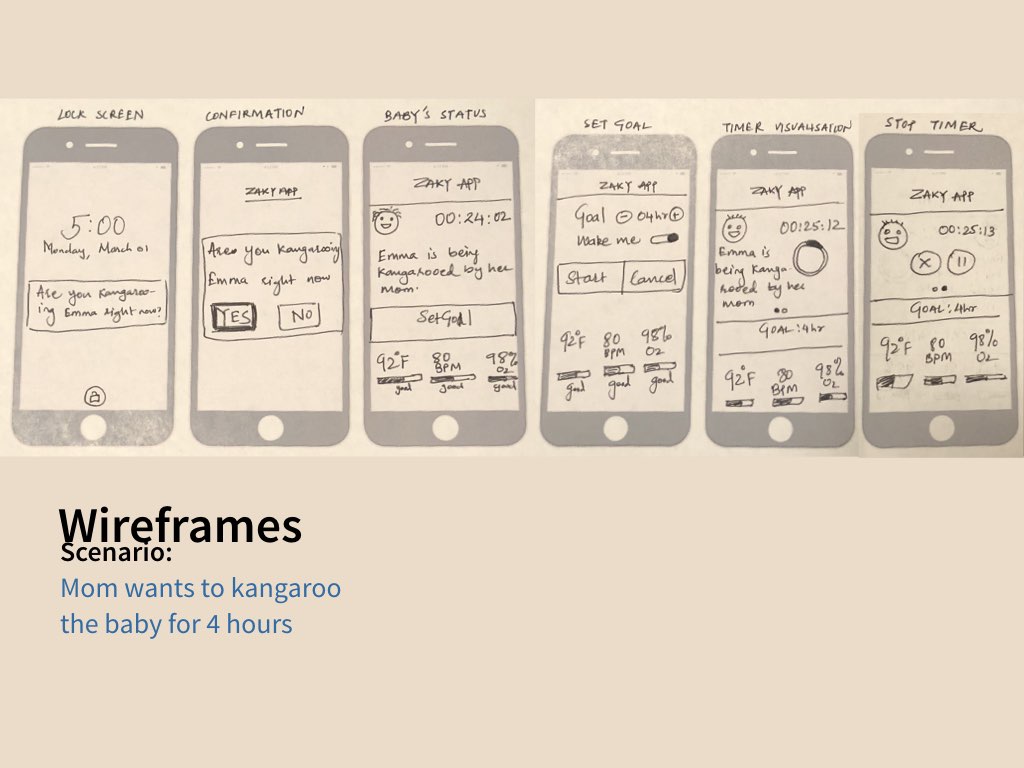 LOCK SCREEN
5:00
Monday, March 01
Are you Kangaroo-
ing Emma right now?
CONFIRMATION
ZAKY APP
Are you Kangarooing
Emma right now
YES
NO
BABY'S STATUS
ZAKY APP
00:24:02
Emma is being
Kangarooed by her
mom.
Set Goal
92°F 80 BPM 98% O2
good good good
SET GOAL
ZAKY APP
Goal - 04hr +
Wake me
Start Cancel
92°F 80 BPM 98% O2
good good good
TIMER VISUALISATION
ZAKY APP
00:25:12
Emma is
being Kanga-
rooed by her
mom
GOAL: 4hr
92°F 80 BPM 98% O2
STOP TIMER
ZAKY APP
00:25:13
GOAL: 4hr
92°F 80 BPM 98% O2
Wireframes
Scenario:
Mom wants to kangaroo
the baby for 4 hours